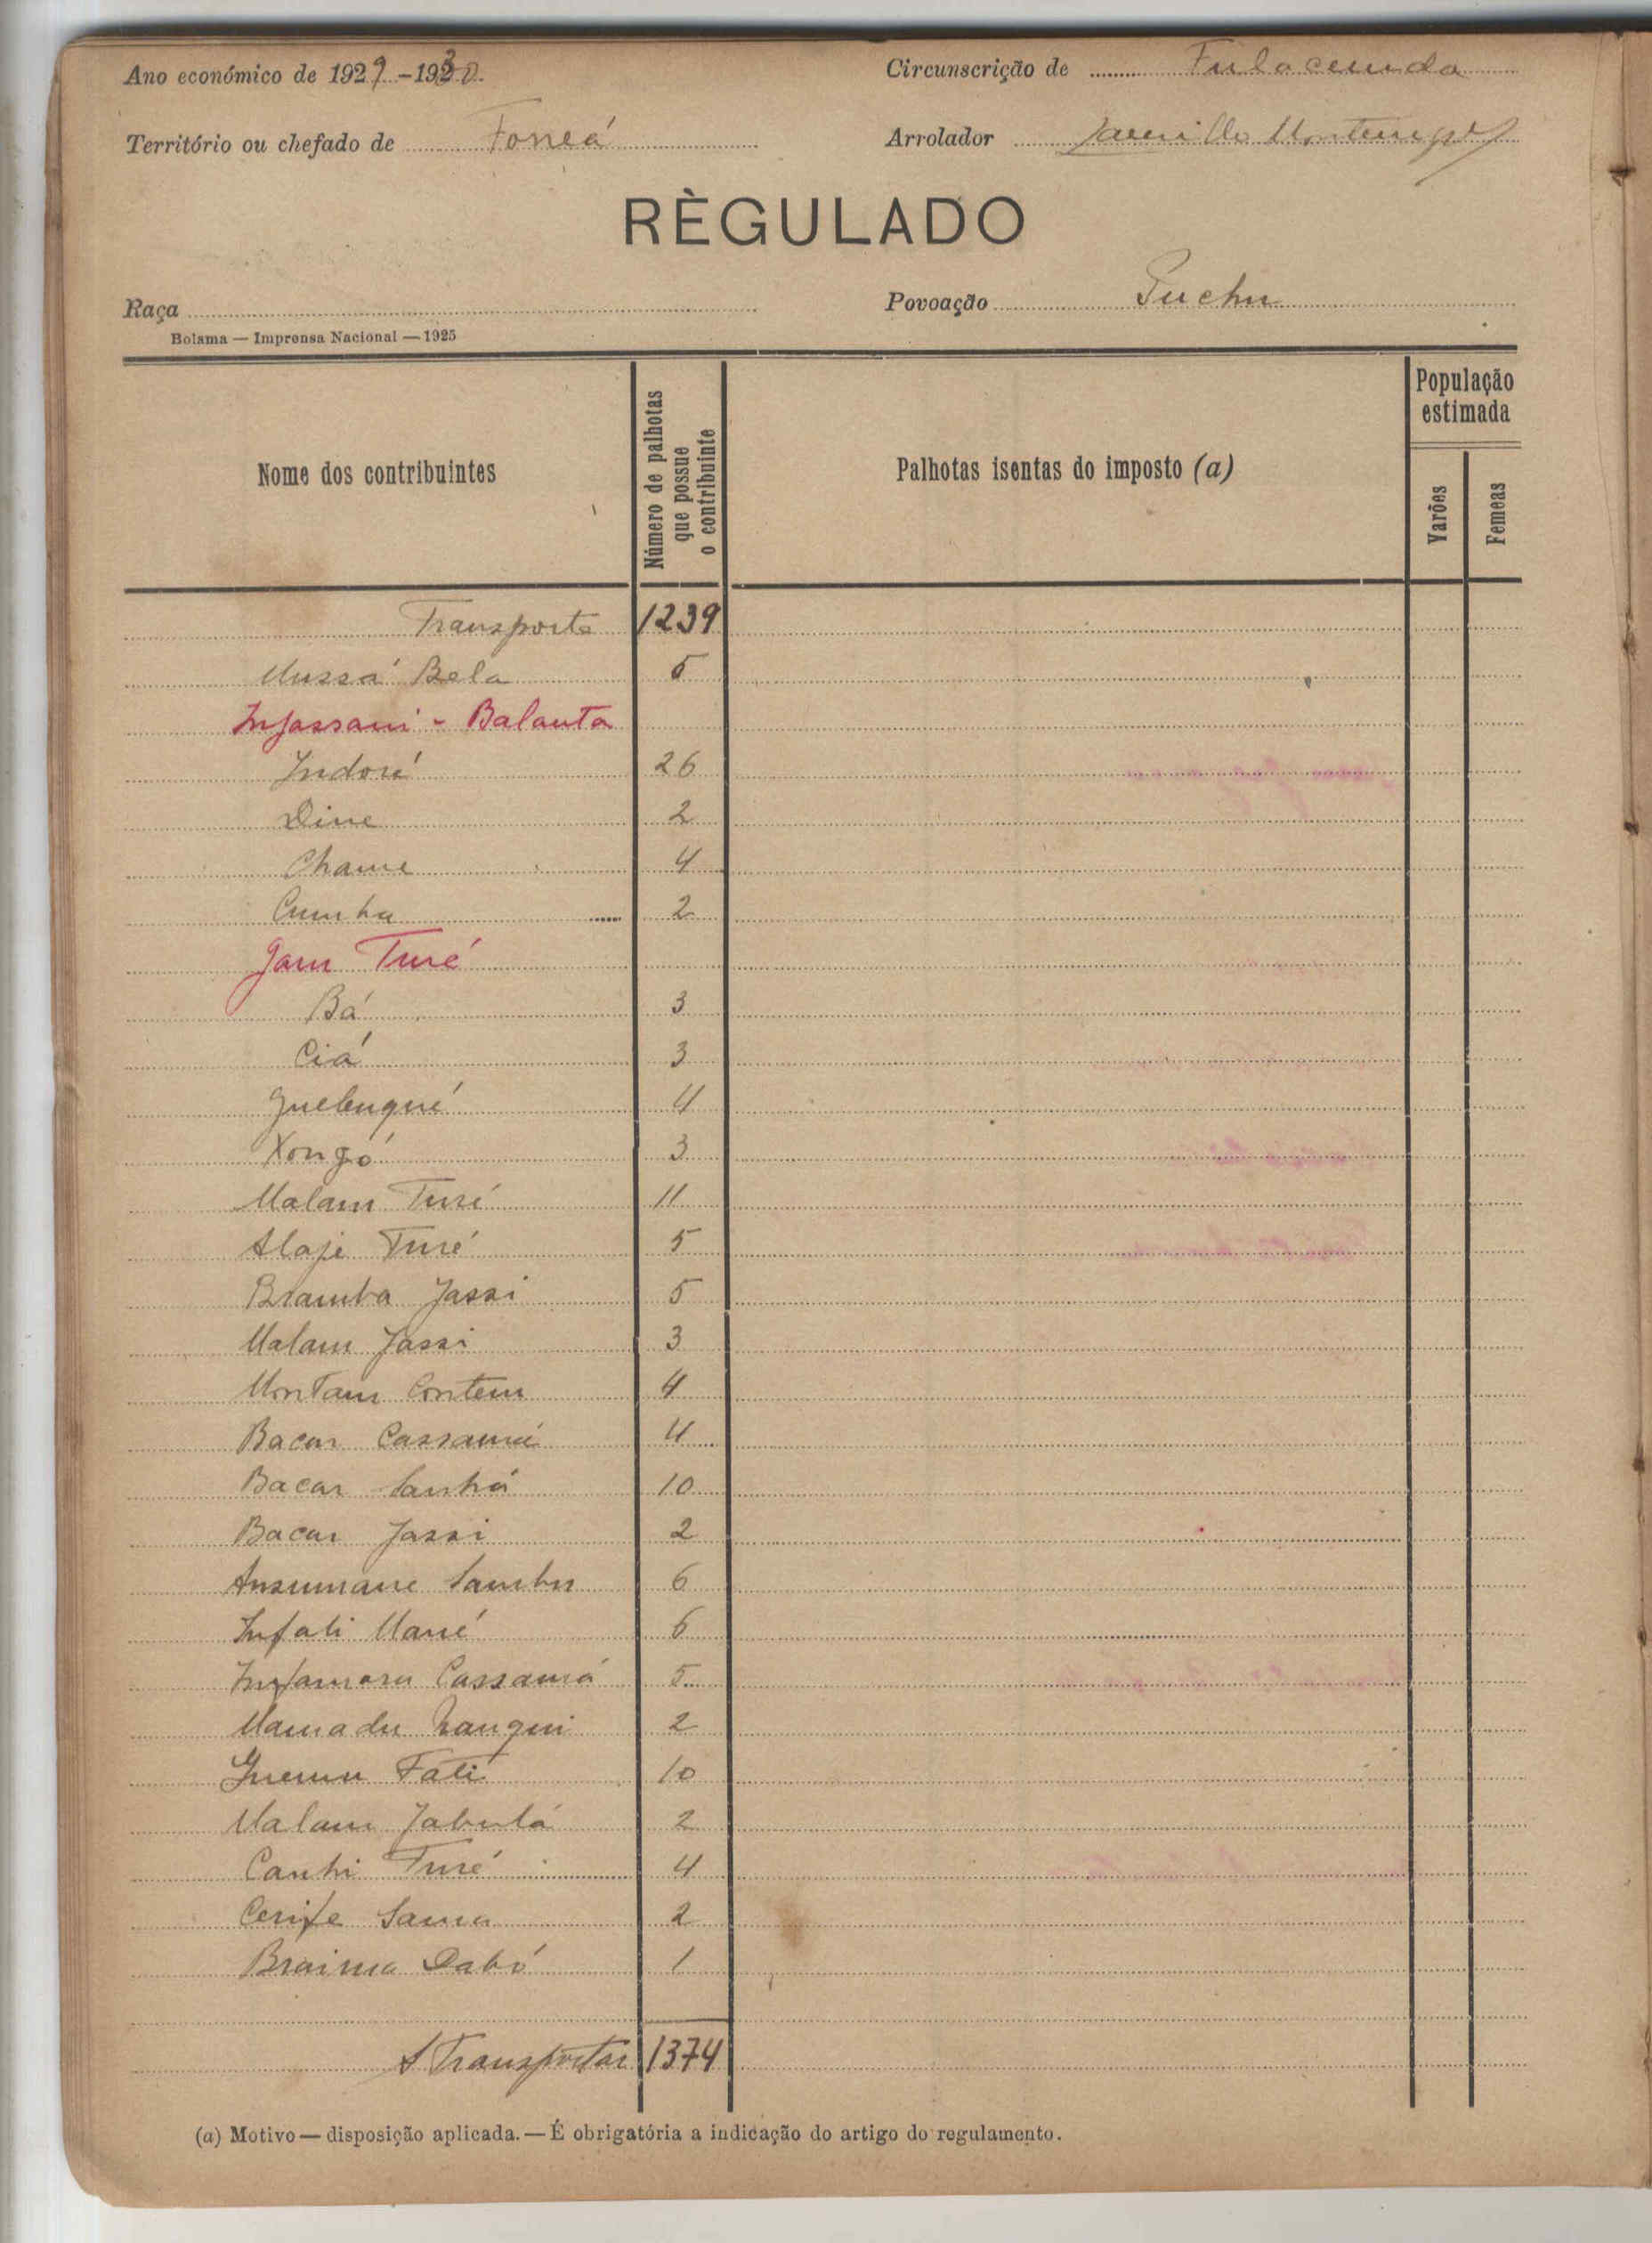 Ano económico de 1929-1930
Circunscrição de Fulacunda
Território ou chefado de Foneá
Arrolador
RÈGULADO
Raça
Povoação Guchu
Bolama — Imprensa Nacional — 1925
Nome dos contribuintes
Número de palhotas que possue o contribuinte
Palhotas isentas do imposto (a)
População estimada
Varões
Femeas
Transporte 1239
Mussá Bela 5
Infassani - Balanta
Indoré 26
Dine 2
Chame 4
Cumba 2
Jam Turé
Bá 3
Ciá 3
Guebuqué 4
Xongó 3
Malam Turé 11
Alaje Turé 5
Bramba Jassi 5
Malam Jassi 3
Montam Contem 4
Bacar Cassamá 4
Bacar Sanhá 10
Bacar Jassi 2
Ansumane Sambu 6
Infali Mané 6
Infamara Cassamá 5
Mamadu 2
Fati 10
Malam Jabulá 2
Canhi Turé 4
Cerife Sama 2
Braima Dabó 1
A Transportar 1374
(a) Motivo — disposição aplicada. — É obrigatória a indicação do artigo do regulamento.